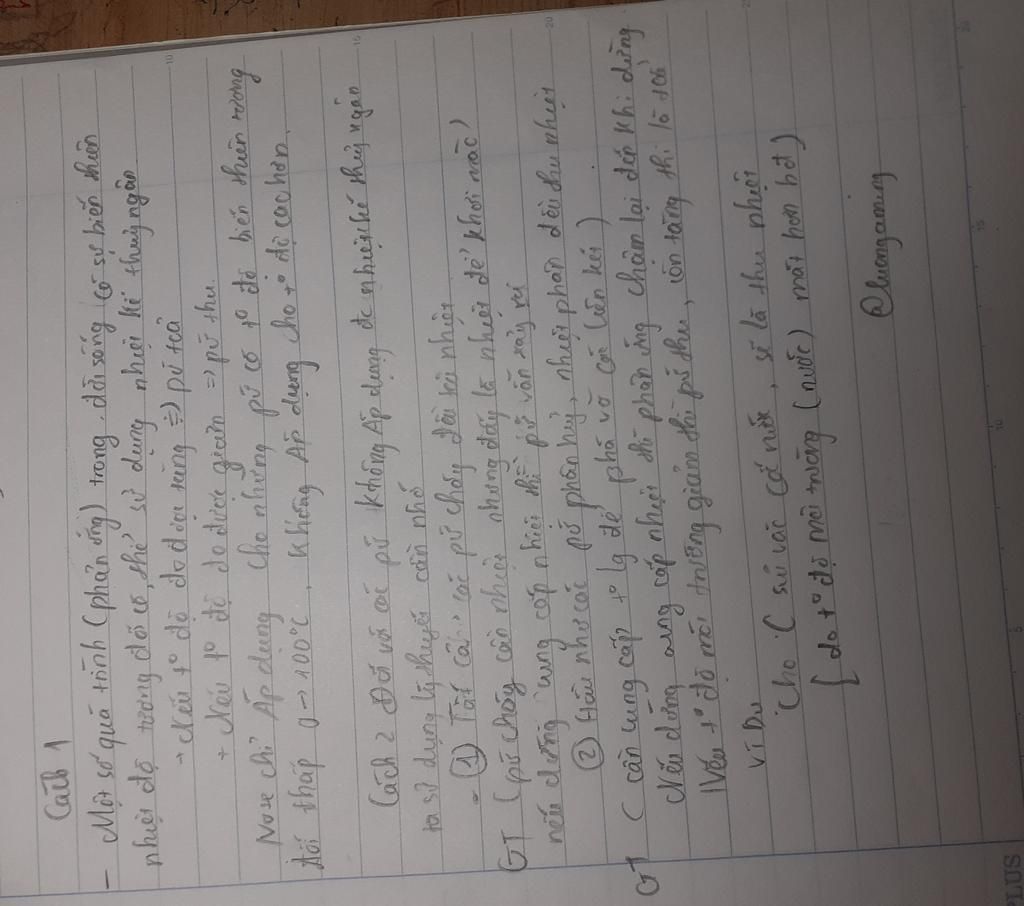 Cách 1
- Một số quá trình (phản ứng) trong đời sống có sự biến thiên
nhiệt độ tương đối có thể sử dụng nhiệt kế thủy ngân
+ Nếu t° độ đo được tăng => pứ tỏa
+ Nếu t° độ đo được giảm => pứ thu.
chỉ Áp dụng cho những pứ có t° độ biến thiên tương
đối thấp 0 → 100°C, Không Áp dụng cho t° độ cao hơn.
Cách 2 Đối với các pứ không Áp dụng đc nhiệt kế thủy ngân
ta sử dụng lý thuyết cần nhớ
- ① Tất cả các pứ cháy đều tỏa nhiệt.
GT (pứ cháy cần nhiệt nhưng đấy là nhiệt để khơi mào)
nếu dừng cung cấp nhiệt thì pứ vẫn xảy ra
② Hầu như các pứ phân hủy, nhiệt phân đều thu nhiệt
GT (cần cung cấp t° lg để phá vỡ các liên kết)
Nếu dừng cung cấp nhiệt thì phản ứng chậm lại đến khi dừng
Nếu t° độ môi trường giảm thì pứ thu, còn tăng thì là tỏa
Ví Dụ
Cho C sủi vào cốc nước, sẽ là thu nhiệt
{ do t° độ môi trường (nước) mát hơn bđ }
@luongaming
20
15
10
5
10
15
20
25
PLUS